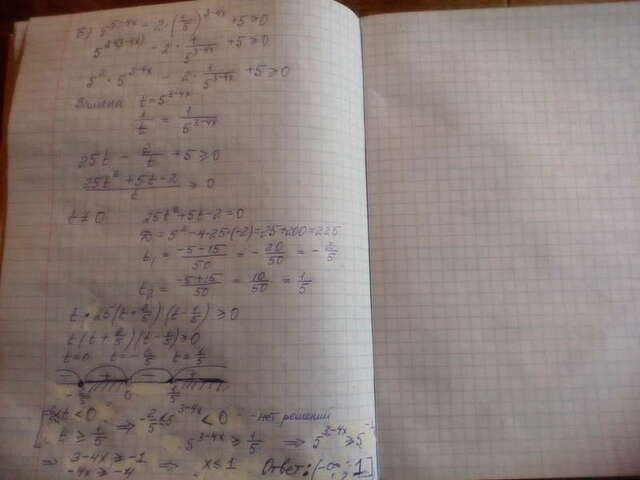 Б) 5^{5-4x} - 2·(1/5)^{3-4x} + 5 ≥ 0
5^{2+(3-4x)} - 2·1/5^{3-4x} + 5 ≥ 0
5^2·5^{3-4x} - 2·1/5^{3-4x} + 5 ≥ 0
Замена t = 5^{3-4x}
1/t = 1/5^{3-4x}
25t - 2/t + 5 ≥ 0
(25t² + 5t - 2)/t ≥ 0
t ≠ 0 25t² + 5t - 2 = 0
D = 5² - 4·25·(-2) = 25 + 200 = 225
t₁ = (-5-15)/50 = -20/50 = -2/5
t₂ = (-5+15)/50 = 10/50 = 1/5
t · 25(t + 2/5)(t - 1/5) ≥ 0
t(t + 2/5)(t - 1/5) ≥ 0
t = 0 t = -2/5 t = 1/5
- + - +
-2/5 0 1/5
[ -2/5 ≤ t < 0 ⇒ -2/5 ≤ 5^{3-4x} < 0 - нет решений
t ≥ 1/5 5^{3-4x} ≥ 1/5 ⇒ 5^{3-4x} ≥ 5^{-1}
⇒ 3-4x ≥ -1 ⇒ x ≤ 1 Ответ: (-∞; 1]
-4x ≥ -4